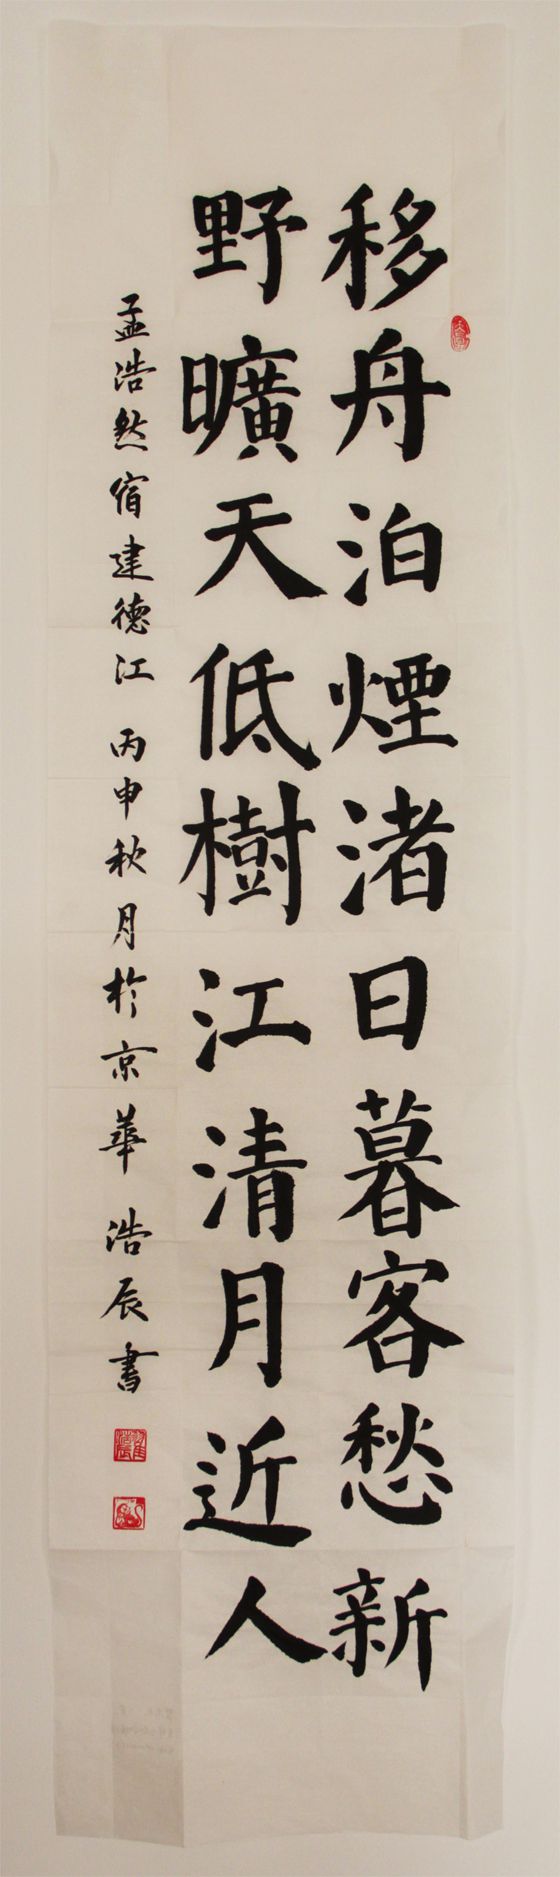 移舟泊煙渚日暮客愁新
野曠天低樹江清月近人
孟浩然宿建德江 丙申秋月於京華 浩辰書